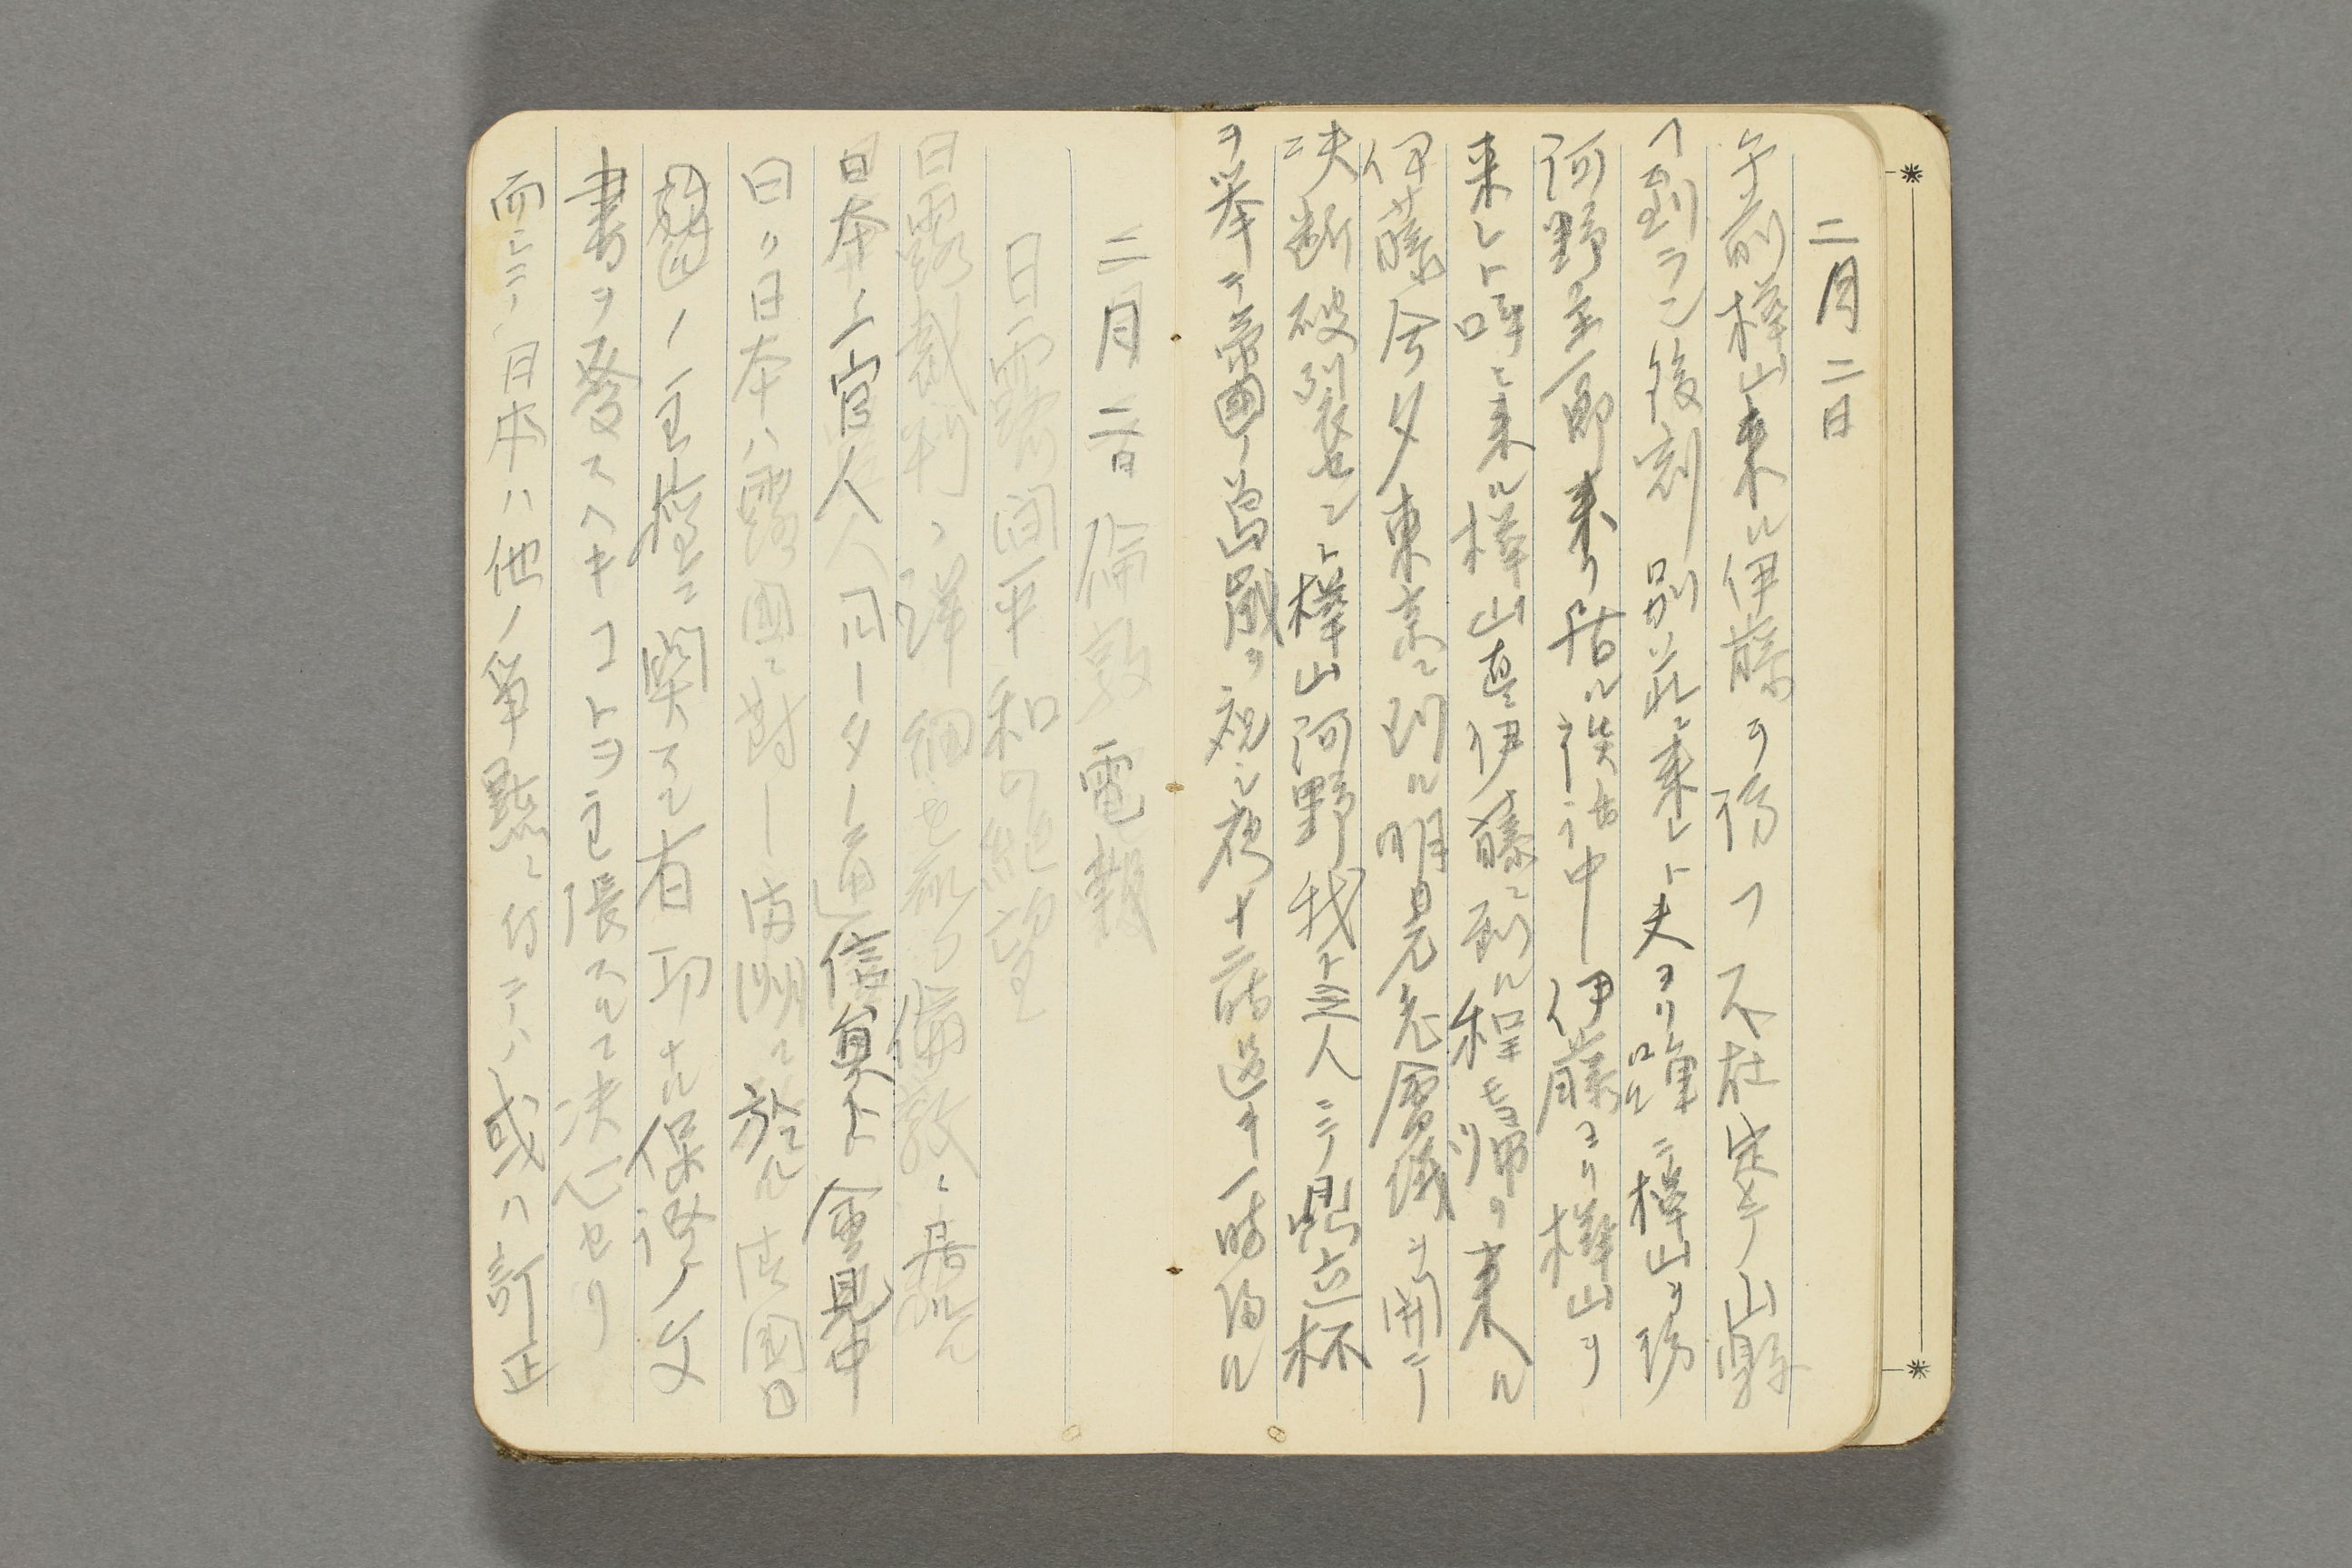 二月二日
午前樺山来ル伊藤ヲ訪フ不在定テ山縣
ヘ到ラン後刻別荘ニ来レト夫ヨリ
樺山ヲ訪
河野主一郎来リ居ル談話中伊藤ヨリ樺山ヲ
来レト呼ニ来ル樺山直ニ伊藤ニ到ル程ナク帰リ来ル
伊藤今夕東京ニ到ル明日元老會議ヲ開テ
決断破裂セント樺山河野我ト三人ニテ立杯
ヲ挙テ帝國ノ萬歳ヲ祝シ夜十二時過キ一時帰ル
二月二日倫敦電報
日露間平和の絶望
日露談判ノ詳細を報る倫敦ニ居ル
日本ノ官人ハ ロータータ通信員ト會見中
曰ク日本ハ露国ニ対シ満洲ニ於ル清国
ノ主権ニ関スル有効ナル保證ノ文
書ヲ発スヘキコトヲ主張スルコトニ決心セリ
而シテ日本ハ他ノ争點ニ付テハ或ハ訂正